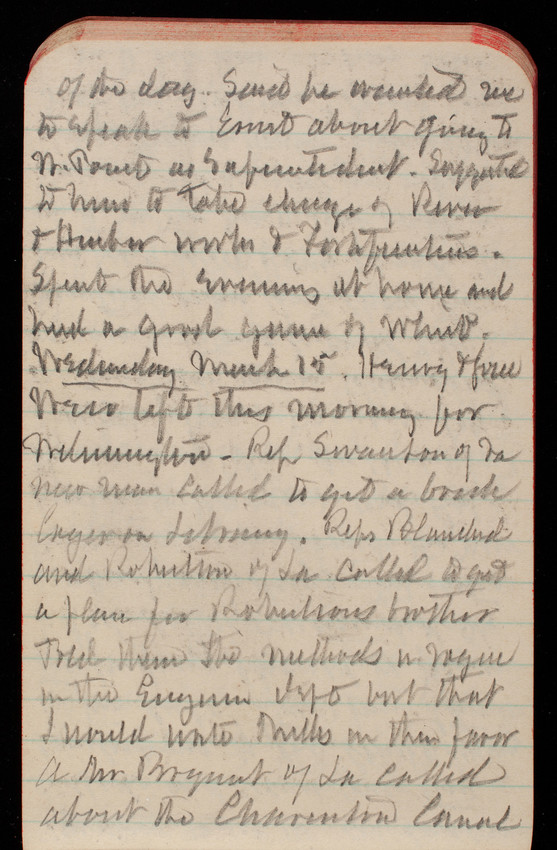 of the day. Said he wanted me
to speak to Ernst about going to
W. Point as Superintendent. Suggested
to him to take charge of River
& Harbor works & Fortifications.
Spent the evening at home and
had a good game of whist.
Wednesday March 15. Henry &
left this morning for
Wilmington. Rep Swanson of Va
new man called to get a
on. Reps Blanchard
and Robertson of La called to get
a place for Robertsons brother
Told them the methods in vogue
in the Engineer Dept but that
I would write Mills in their favor
A Mr Bryant of La called
about the Charenton Canal